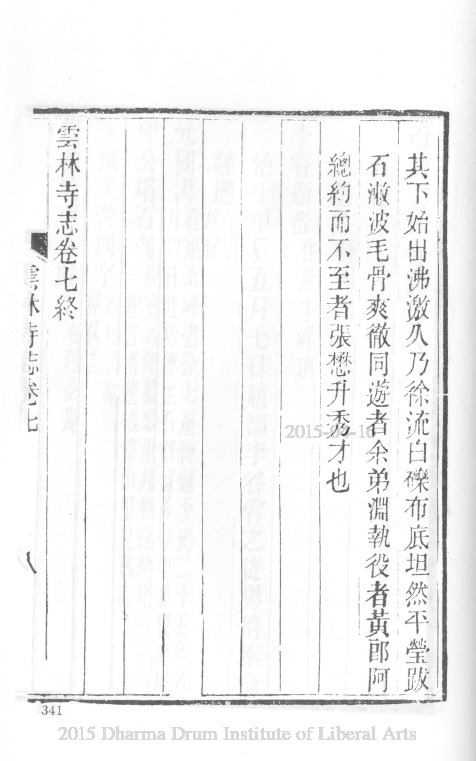 其下始出沸激久乃徐流白礫布底坦然平瑩跋
石漱波毛骨爽徹同遊者余弟淵執役者黃郎阿
總約而不至者張懋升秀才也
雲林寺志卷七終
雲林寺志卷七
八
341
2015 Dharma Drum Institute of Liberal Arts